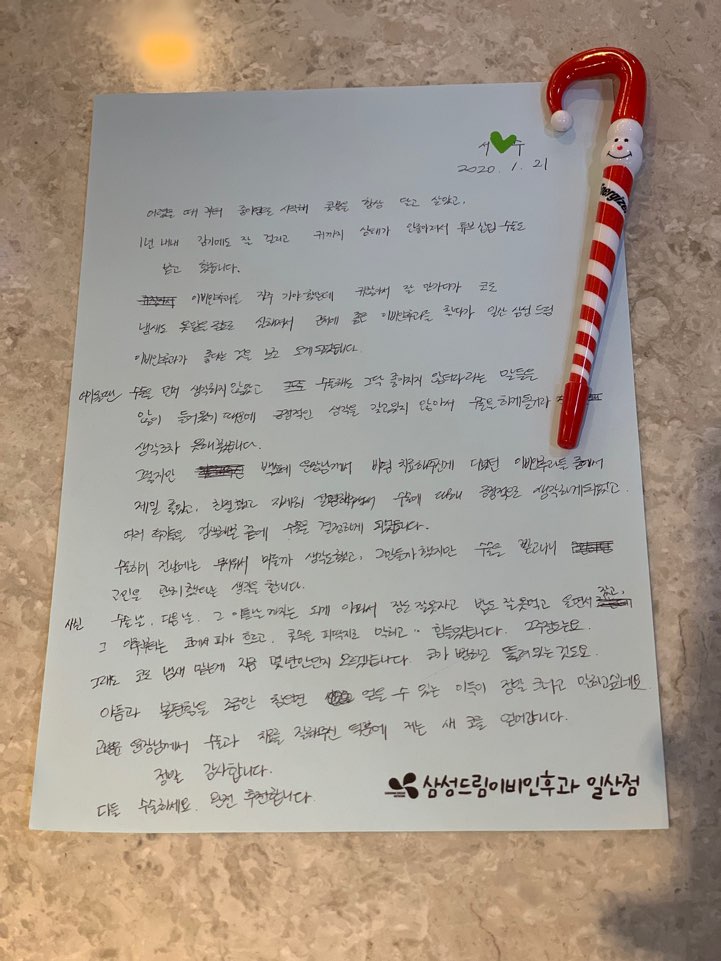 서 수
2020. 1. 21
어렸을 때 부터 중이염으로 시작해 콧물을 항상 달고 살았고,
1년 내내 감기에도 잘 걸리고 귀까지 상태가 안좋아져서 튜브 삽입 수술도
받고 했습니다.
이비인후과를 자주 가야 했는데 귀찮아서 잘 안가다가 코로
냄새도 못맡을 정도로 심해져서 근처에 좋은 이비인후과를 찾다가 일산 삼성드림
이비인후과가 좋다는 것을 보고 오게 되었습니다.
수술을 먼저 생각하지 않았고 수술해도 그닥 좋아지지 않더라 라는 말들을
많이 들어왔기 때문에 긍정적인 생각을 갖고있지 않아서 수술을 하게될거라
생각조차 못해봤습니다.
그렇지만 원장님께서 비염 치료해주신게 다녔던 이비인후과들 중에서
제일 좋았고, 친절했고 자세히 설명해주셔서 수술에 대해 긍정적으로 생각하게 되었고
여러 후기들을 검색해본 끝에 수술을 결정하게 되었습니다.
수술하기 전날에는 무서워서 미룰까 생각도했고, 고민들가 했지만 수술을 받고나니
고민을 괜히 했다는 생각을 합니다.
사실 수술날, 다음날, 그 이튿날 까지는 되게 아파서 잠도 잘못자고 밥도 잘 못먹고 울면서 잤고,
그 이후부터는 코에서 피가 흐르고, 콧속을 피딱지로 막히고.. 힘들었습니다. 2주정도는요.
그래도 코로 냄새 맡는게 지금 몇년만인지 모르겠습니다. 코가 변하고 뚫려 있는 것도요.
아픔과 불편함을 조금만 참으면 얻을 수 있는 이득이 정말 크다고 말하고싶네요.
원장님께서 수술과 치료를 잘해주신 덕분에 저는 새 코를 얻어갑니다.
정말 감사합니다.
다들 수술하세요. 완전 추천합니다.
삼성드림이비인후과 일산점
Energizer